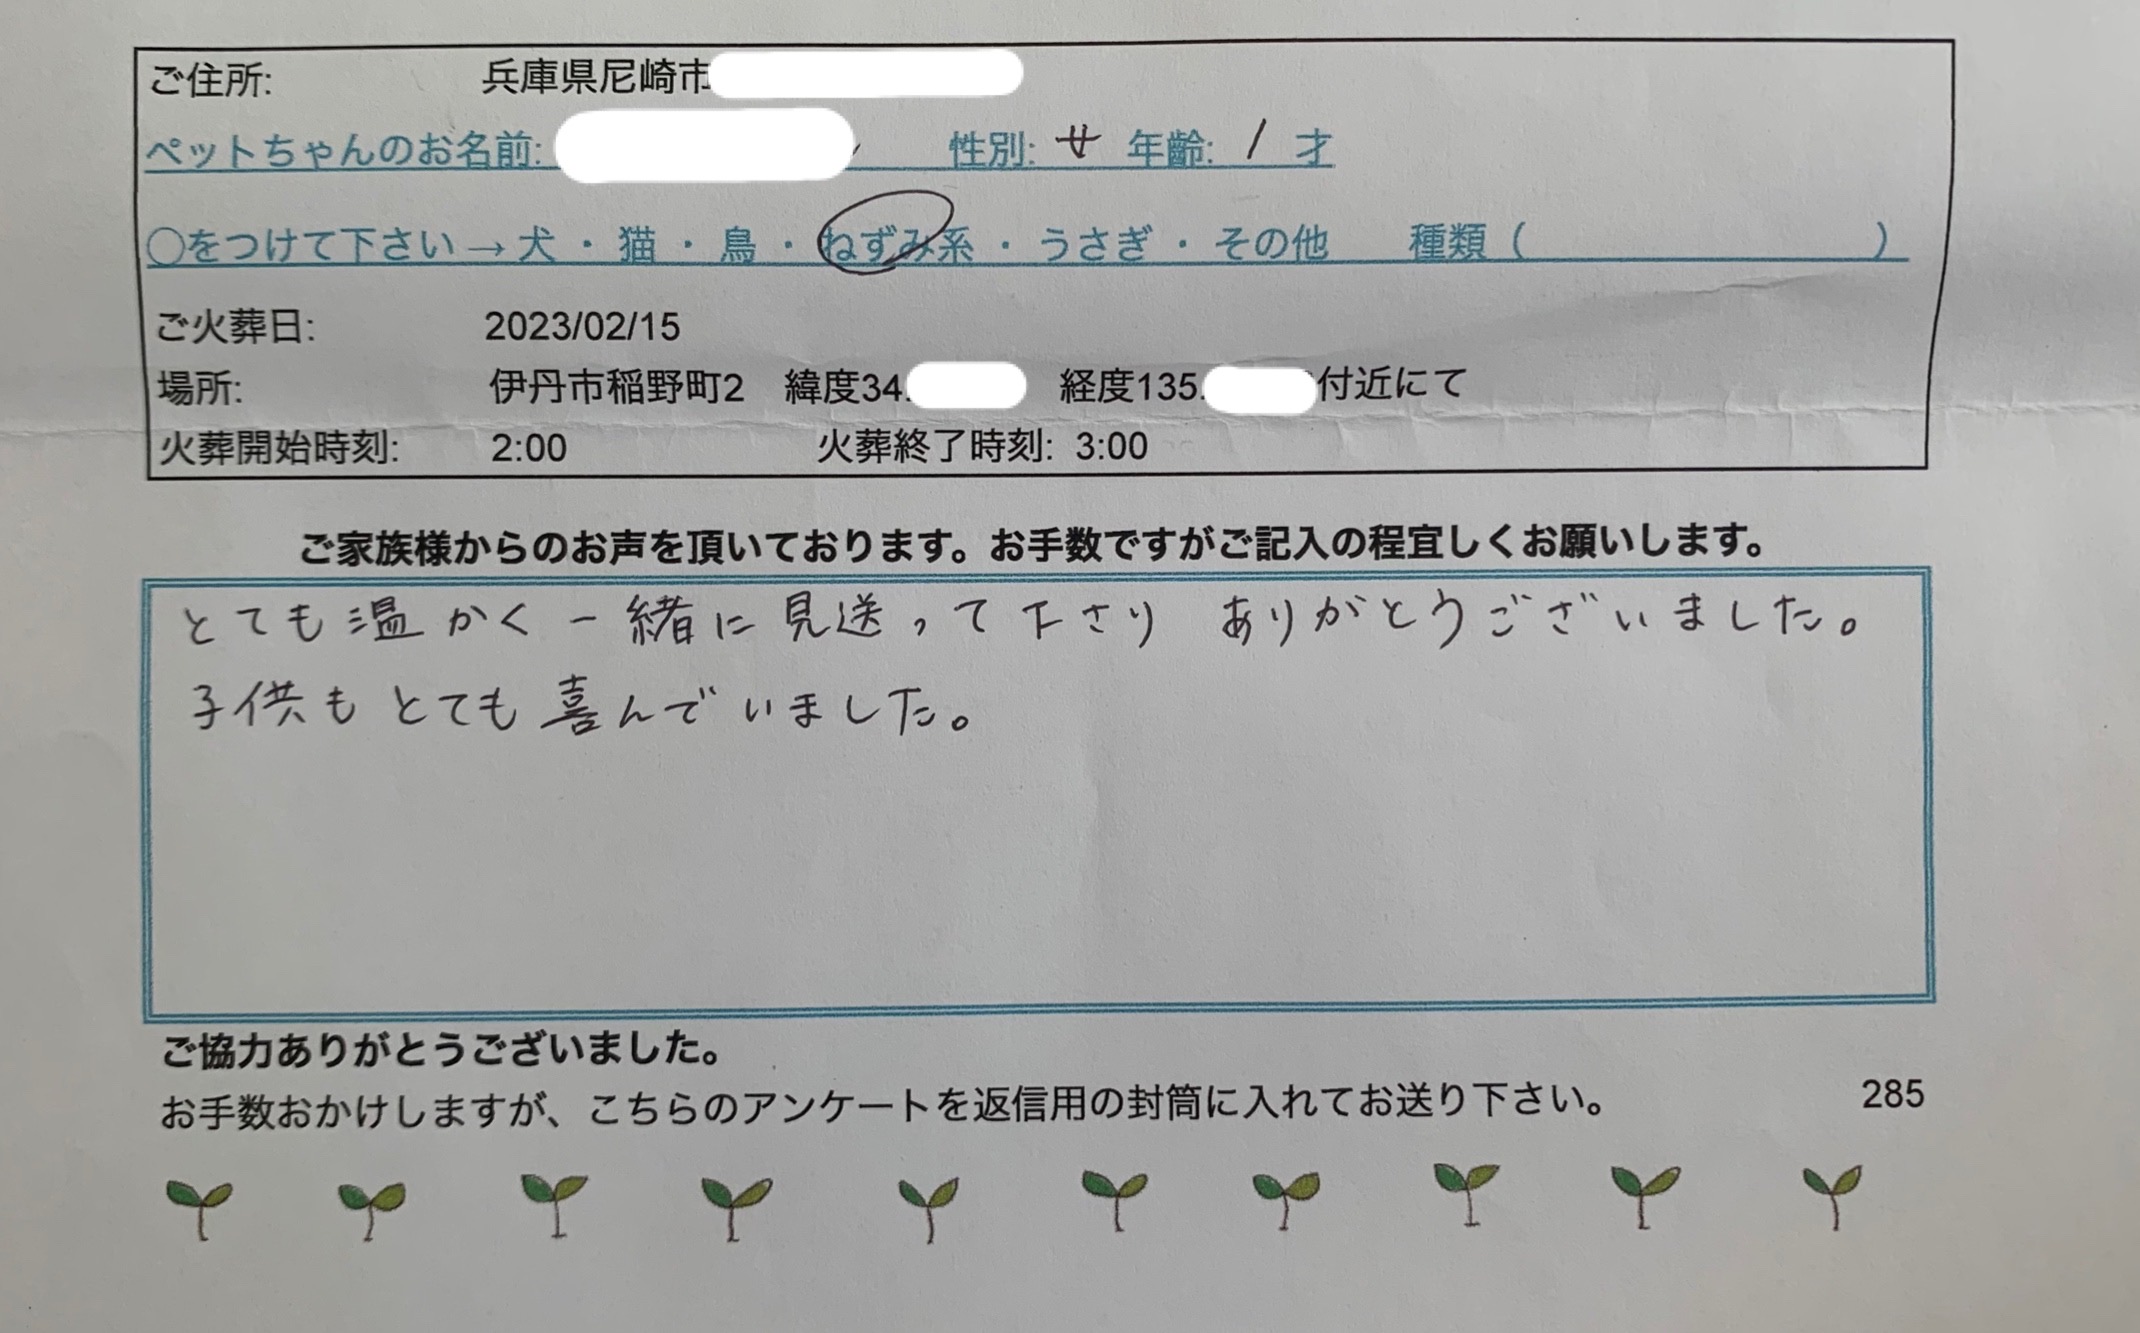 ご住所: 兵庫県尼崎市
ペットちゃんのお名前: 性別: 女 年齢: 1 才
○をつけて下さい→犬・猫・鳥・ねずみ系・うさぎ・その他 種類（ ）
ご火葬日: 2023/02/15
場所: 伊丹市稲野町2 緯度34. 経度135. 付近にて
火葬開始時刻: 2:00 火葬終了時刻: 3:00
ご家族様からのお声を頂いております。お手数ですがご記入の程宜しくお願いします。
とても温かく一緒に見送って下さり ありがとうございました。
子供もとても喜んでいました。
ご協力ありがとうございました。
お手数おかけしますが、こちらのアンケートを返信用の封筒に入れてお送り下さい。 285